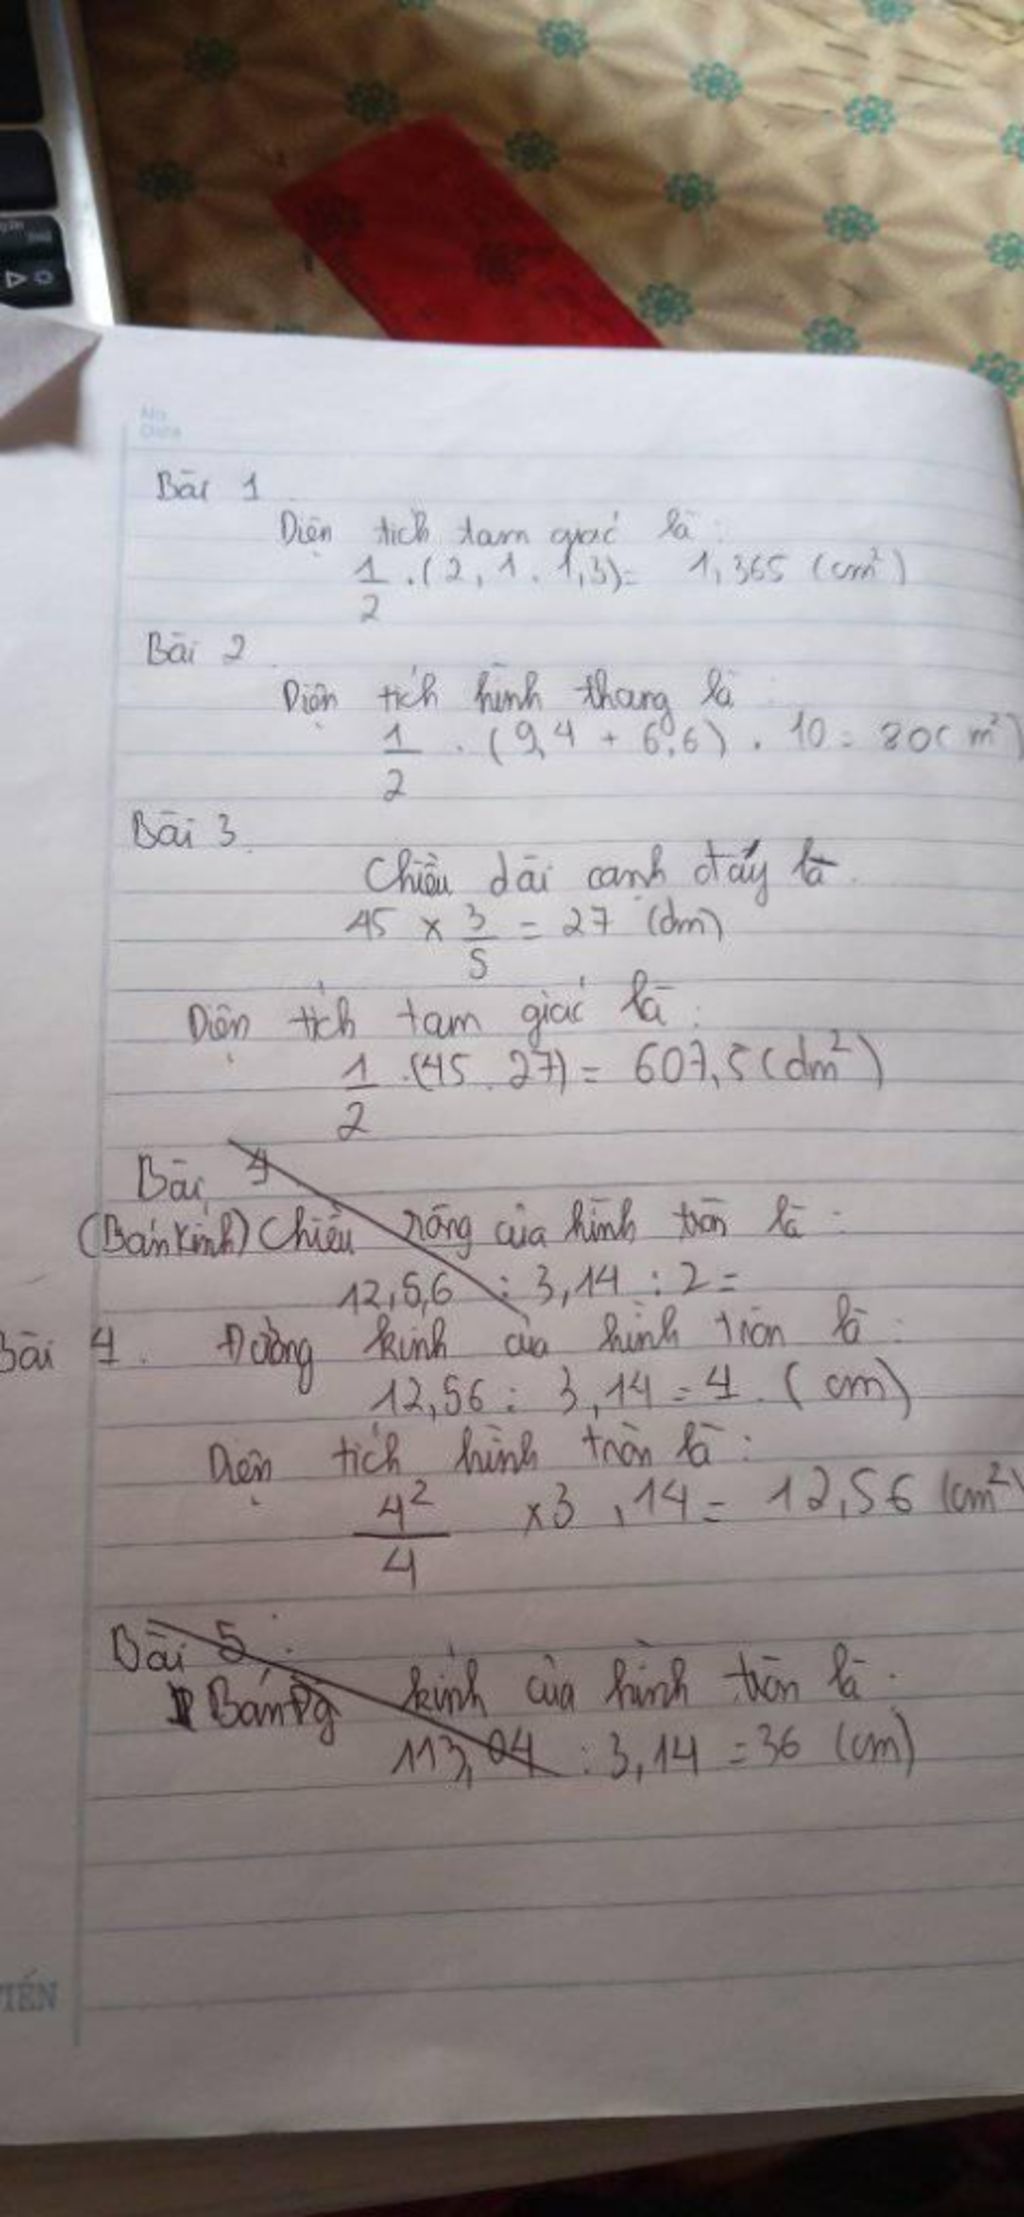 No
Date
Bài 1
Diện tích tam giác là:
1/2 . (2,1 . 1,3) = 1,365 (cm²)
Bài 2
Diện tích hình thang là:
1/2 . (9,4 + 6,6) . 10 = 80 (m²)
Bài 3.
Chiều dài cạnh đáy là.
45 x 3/5 = 27 (dm)
Diện tích tam giác là:
1/2 . (45 . 27) = 607,5 (dm²)
Bài 4
(Bán kính) Chiều rộng của hình tròn là:
12,5,6 : 3,14 : 2 =
Bài 4. Đường kính của hình tròn là:
12,56 : 3,14 = 4. (cm)
Diện tích hình tròn là:
4²/4 x 3,14 = 12,56 (cm²)
Bài 5:
Bán kính của hình tròn là.
113,04 : 3,14 = 36 (cm)
TIẾN